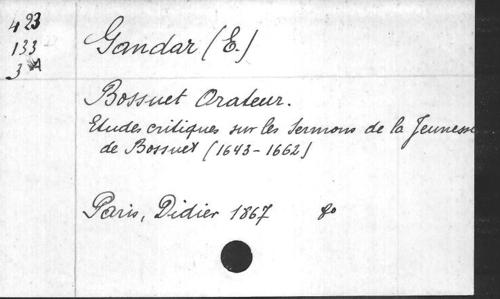 423
133
3
Gandar (E.)
Bossuet Orateur.
Etudes critiques sur les Sermons de la Jeunesse
de Bossuet (1643-1662)
Paris, Didier 1867 8o